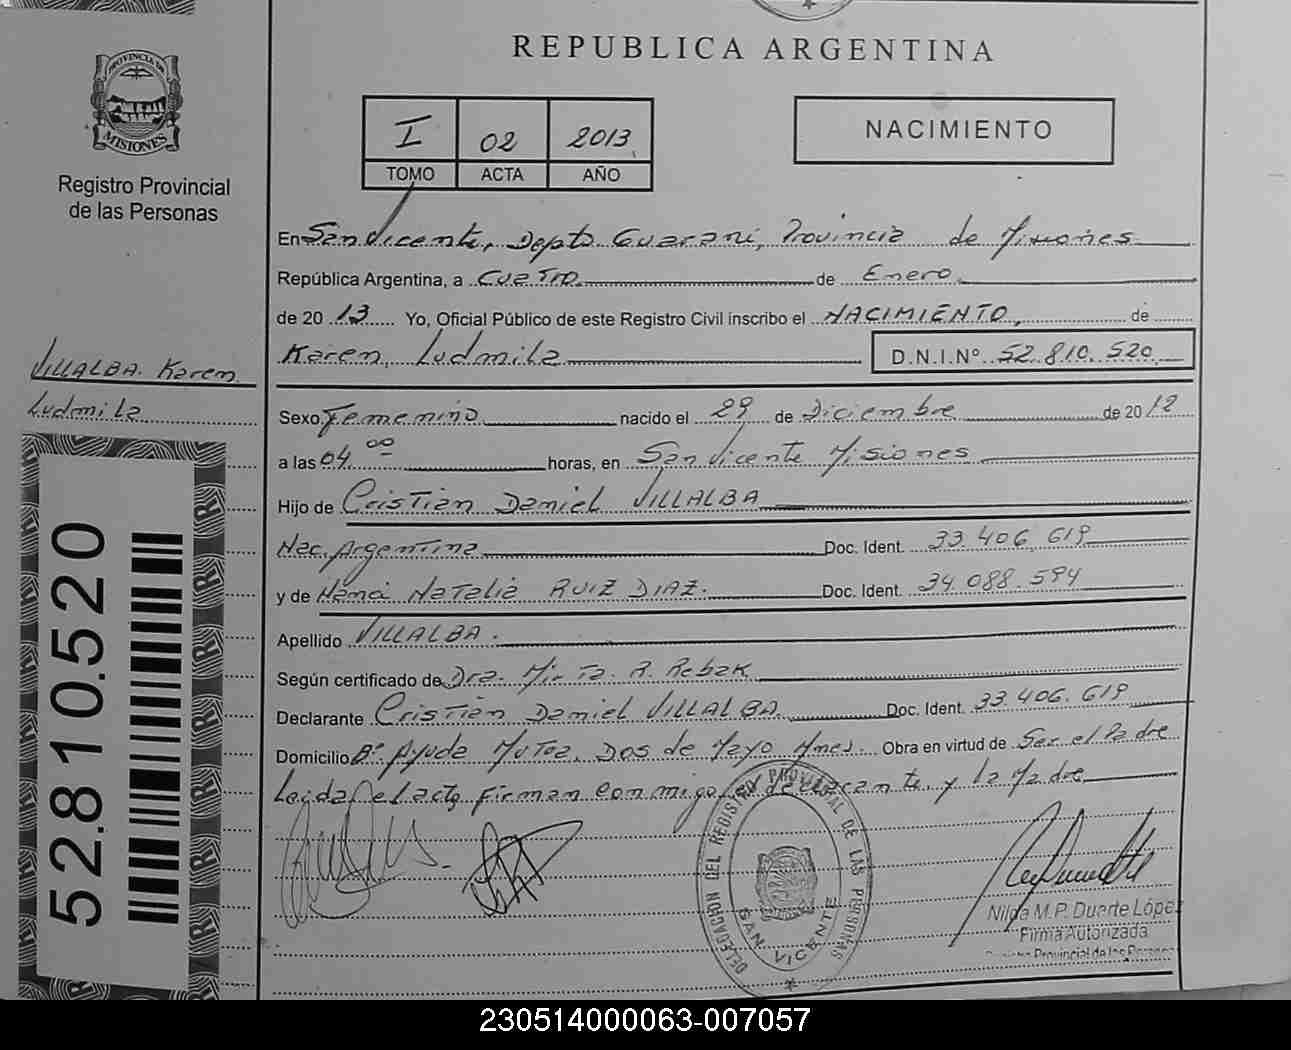 REPUBLICA ARGENTINA
PROVINCIA DE
MISIONES
Registro Provincial
de las Personas
I 02 2013
TOMO ACTA AÑO
NACIMIENTO
En San Vicente, Depto Guarani, Provincia de Misiones
República Argentina, a Cuatro de Enero
de 20 13 Yo, Oficial Público de este Registro Civil inscribo el NACIMIENTO, de
Karen Ludmila D.N.I.Nº 52.810.520
VILLALBA Karen
Ludmila
Sexo Femenino nacido el 29 de Diciembre de 20 12
a las 04 00 horas, en San Vicente Misiones
Hijo de Cristian Daniel VILLALBA
Nac. Argentina Doc. Ident. 33.406.619
y de Natalia RUIZ DIAZ. Doc. Ident. 34.088.594
Apellido VILLALBA.
Según certificado de Dra. Mirta. R. Rebak
Declarante Cristian Daniel VILLALBA Doc. Ident. 33.406.619
Domicilio Bº Ayuda Mutua, Dos de Mayo Mnes. Obra en virtud de Ser el Padre
Leida el acta firman conmigo el declarante y la Madre
52.810.520
DELEGACION DEL REGISTRO PROVINCIAL DE LAS PERSONAS
SAN VICENTE
Nilda M.P. Duarte López
Firma Autorizada
Registro Provincial de las Personas
230514000063-007057